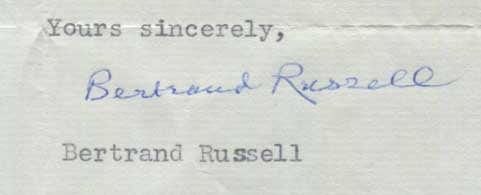 Yours sincerely,
Bertrand Russell
Bertrand Russell